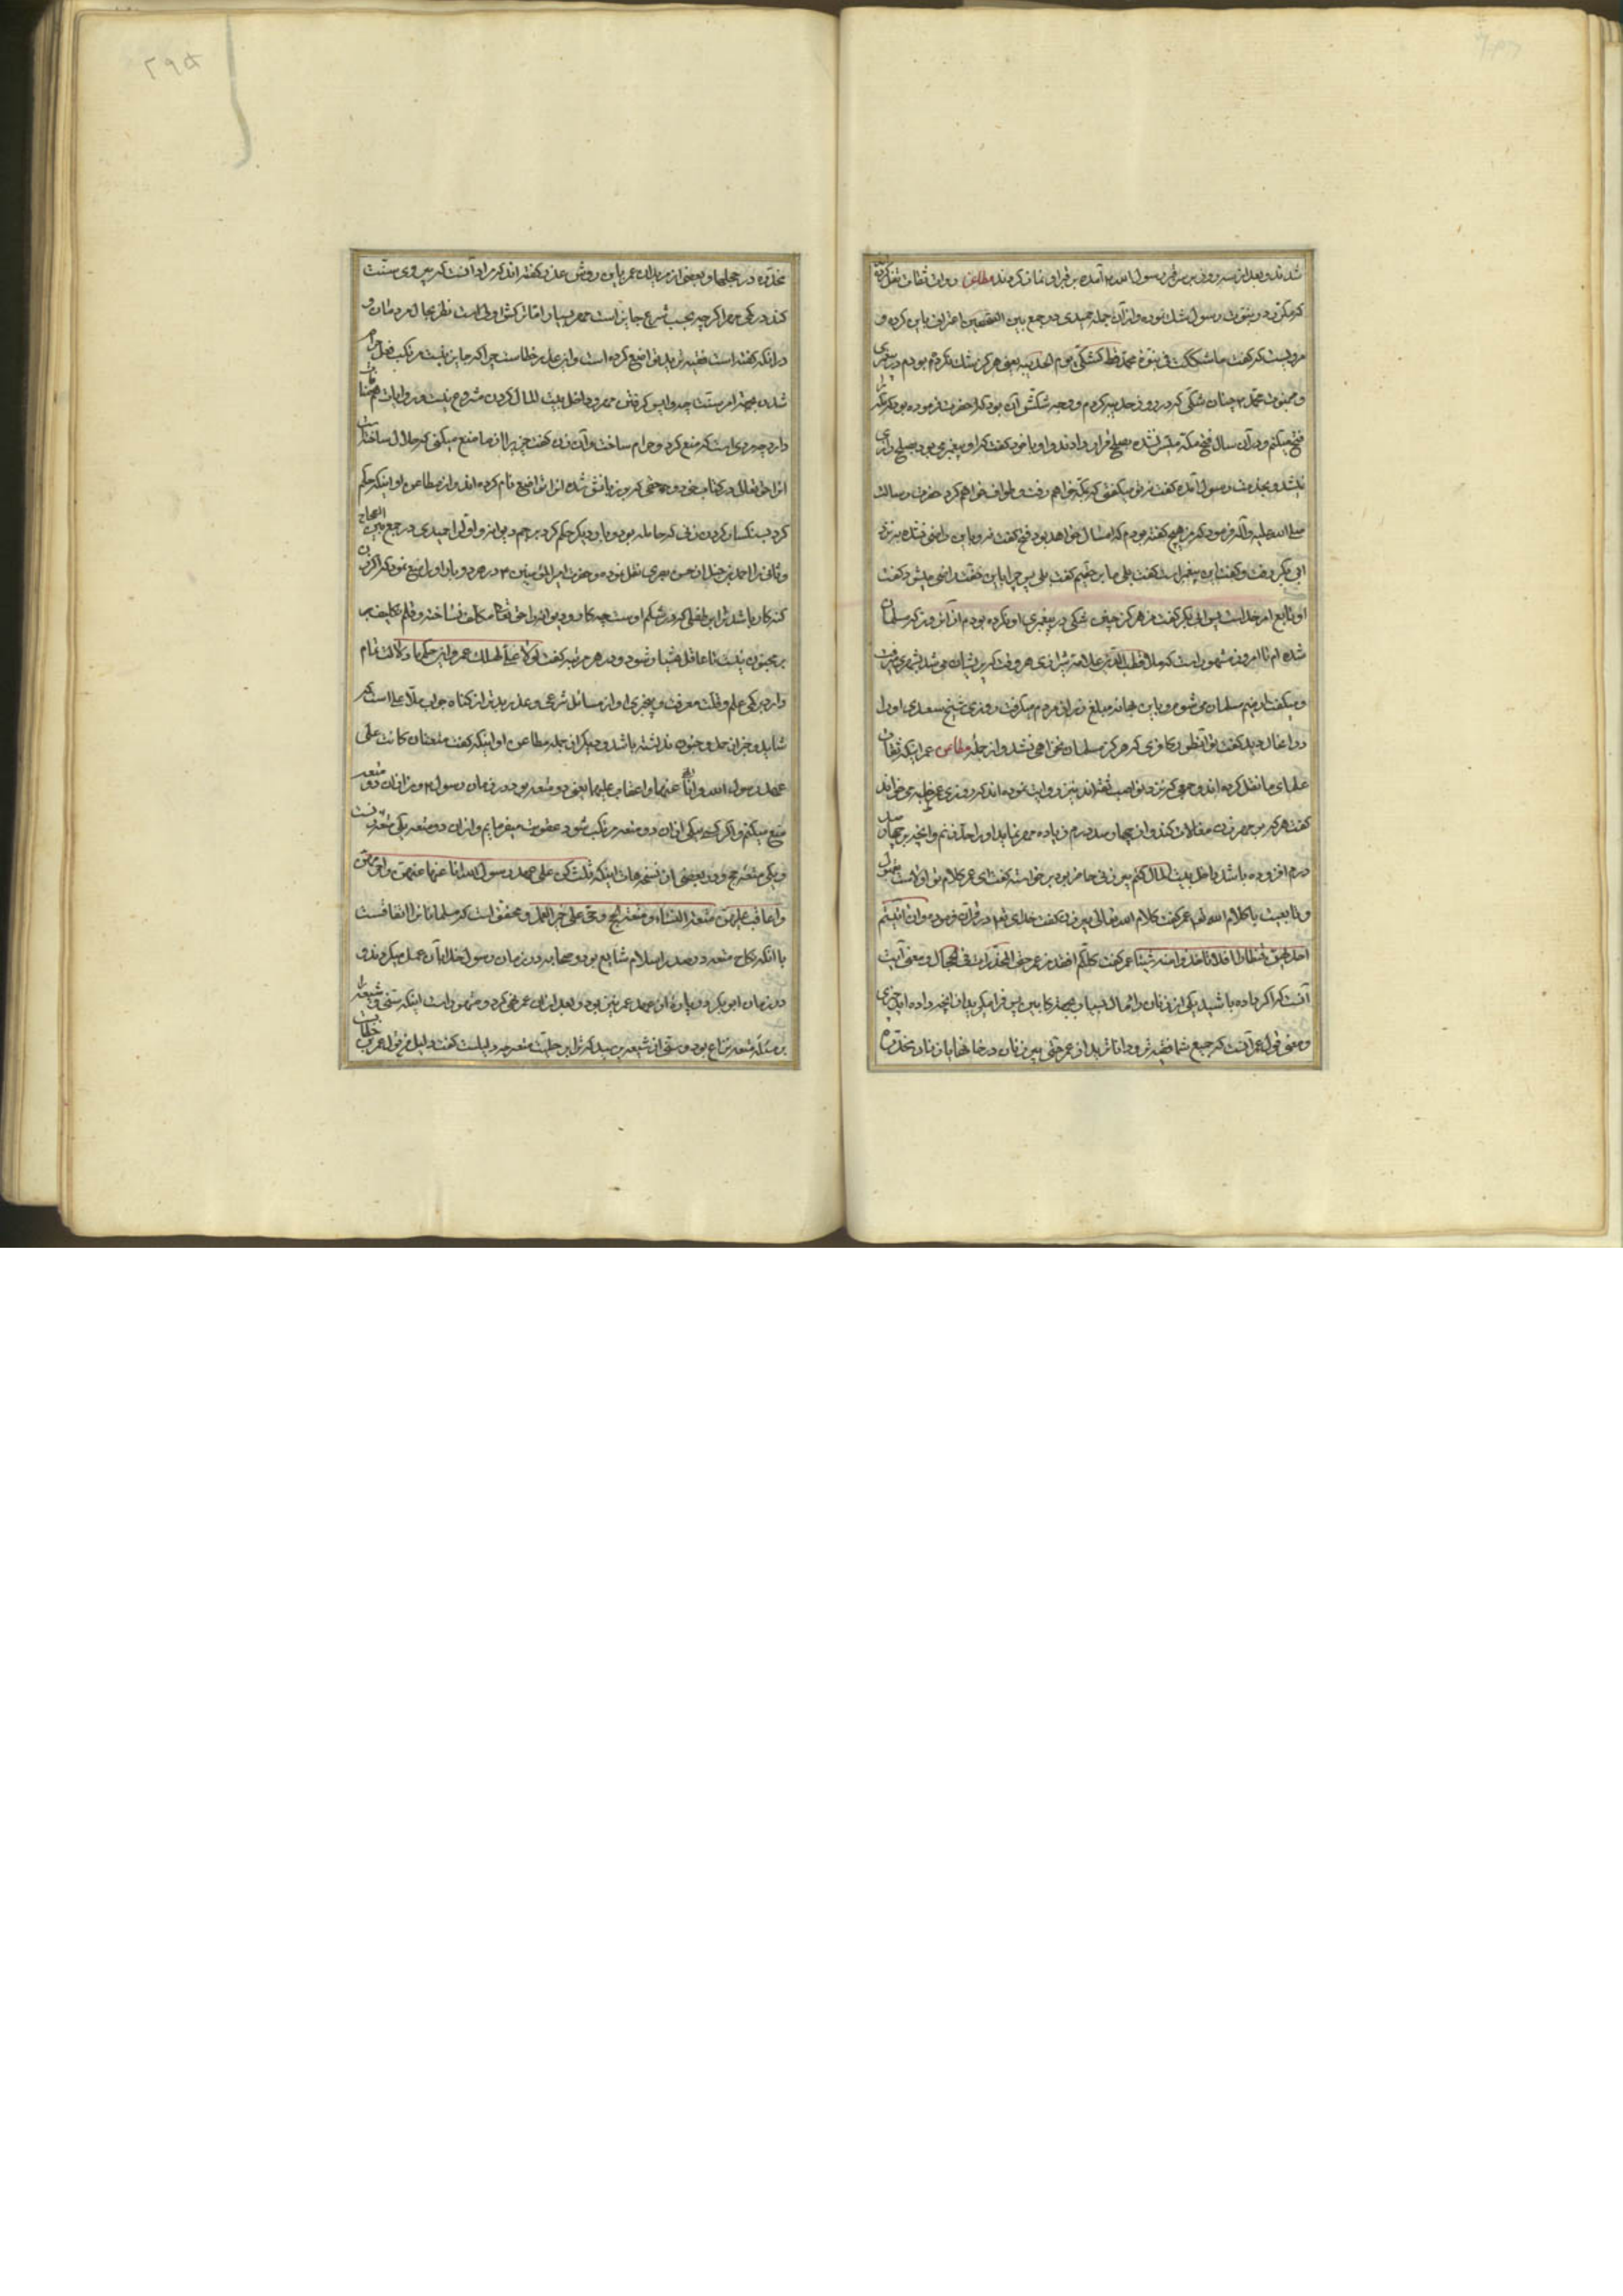 شدند و بعد از سه روز بر سر قبر رسول الله آمده بر قبر او نماز کردند مطاعن دوم ثقات نقل کرده
که مکرر در نبوت رسول شک نموده و از آن جمله حمیدی در جمع بین الصحیحین اعتراف باین کرده و
مرویست که گفت ما شککت فی نبوة محمد قط کشکی یوم الحدیبیه یعنی هرگز شک نکرده بودم در پیغمبری
و نبوت محمد چنان شکی که در روز حدیبیه کردم و وجه شکش آن بود که حضرت فرموده بود که مکه
فتح میکنم و در آن سال فتح مکه میسر نشده بصلح قرار دادند و او با خود گفت که او پیغمبری بود بصلح راضی
نمیشد و بخدمت رسول آمده گفت نه تو میگفتی که بمکه خواهم رفت و طواف خواهم کرد حضرت رسالت
صلی الله علیه و آله فرمود که من هیچ گفته بودم که امسال خواهد بود فتح گفت نه و باین راضی نشده نزد
ابی بکر رفت و گفت این پیغمبر است گفت بلی ما بر حقیم گفت بلی پس چرا باین خفت راضی میشود گفت
او تابع امر خداست پس ابی بکر گفت من هرگز چنین شکی در پیغمبری او نکرده بودم از آن روز که مسلمان
شده ام تا امروز مشهور است که ملا قطب الدین علامه شیرازی هر وقت که پریشان می شد بشهری میرفت
و میگفت ارمنیم مسلمان می شوم و باین بهانه مبلغ زر از مردم میگرفت روزی شیخ سعدی او را
در آن حال دید گفت تو آنطور کافری که هرگز مسلمان نخواهی شد و از جمله مطاعن عمر اینکه ثقات
علمای ما نقل کرده اند و جمعی که نزد نواصب ثقه اند نیز روایت نموده اند که روزی عمر خطبه می خواند
گفت هر که در مهر زن مغالات کند و از چهار صد درم زیاده مهر نماید او را حد زنم و آنچه بر چهار صد
درم افزوده باشد داخل بیت المال کنم پیر زنی حاضر بود برخواسته گفت ای عمر کلام تو اولی است بقبول
و متابعت یا کلام الله تعالی عمر گفت کلام الله تعالی پیر زن گفت خدای تعالی در قرآن فرموده و ان آتیتم
احدیهن قنطارا فلا تاخذوا منه شیئا عمر گفت کلکم افقه من عمر حتی المخدرات فی الحجال و معنی آیت
آنست که اگر داده باشید یکی از زنان را مال بسیار بجهة کابین پس فرا مگیرید از آنچه داده اید چیزی
و معنی قول عمر آنست که جمیع شما فقیه تر و داناترید از عمر حتی پیر زنان در خانها یا زنان مخدره
مخدره در حجلها و بعضی از مریدان عمر باین روش عذر گفته اند که مراد آنست که پیروی سنت
کند در کمی مهر اگر چه بحسب شرع جایز است مهر بسیار اما ترکش اولی است نظر بحال مردمان و
در آنکه گفته است فقیه ترید تواضع کرده است و این عذر خطاست چرا که جایز نیست مرتکب فعل حرام
شدن بجهة امر سنت چه واپس گرفتن مهر و داخل بیت المال کردن مشروع نیست و روایات هم منافات
دارد چه مروی است که منع کرد و حرام ساخت و آن زن گفت چیزی را از ما منع میکنی که حلال ساخته است
آنرا حق تعالی در کتاب خود و چنین که بر زبانش شده آنرا تواضع نام کرده اند و از مطاعن او اینکه حکم
کرد به سنگسار کردن زنی که حامله بود و بار دیگر حکم کرد برجم دیوانه و اول را حمیدی در جمع بین الصحاح
و ثانی را احمد بن حنبل از حسن بصری نقل نموده و حضرت امیر المؤمنین در هر دو بار او را منع نمود که اگر زن
گنه کار باشد ترا بر طفلی که در شکم اوست چه کار و دیوانه را حق تعالی مکلف نساخته و قلم تکلیف بر
بر مجنون نیست تا عاقل و هشیار شود و در هر مرتبه گفت لولا علی لهلک عمر و این حکمها دلالت تمام
دارد بر کمی علم و قلت معرفت و بیخبری او از مسائل شرعی و عذر بدتر از گناه جواب ملا علی است که
شاید خبر از حمل و جنون نداشته باشد و دیگر از جمله مطاعن او اینکه گفت متعتان کانتا علی
عهد رسول الله و انا انهی عنهما و اعاقب علیهما یعنی دو متعه بود در زمان رسول و من از آن دو متعه
منع میکنم و اگر کسی بیکی از آن دو متعه مرتکب شود عقوبت میفرمایم و از آن دو متعه یکی متعه زنست
و یکی متعه حج و در بعضی از نسخه هاست اینکه ثلث کن علی عهد رسول الله انا انهی عنهن و احرمهن
و اعاقب علیهن متعة النساء و متعة الحج و حی علی خیر العمل و محقق است که مسلمانان را اتفاقست
با آنکه نکاح متعه در صدر اسلام شایع بود و صحابه در زمان رسول خدا بآن عمل میکردند و
در زمان ابو بکر و پاره از عهد عمر نیز بود و بعد از آن عمر نهی کرد و مشهور است اینکه سنی و شیعه را
بر مسئله متعه نزاع بود و سنی از شیعه پرسید که ترا بر حلیت متعه چه دلیلست گفت دلیل من قول عمر بن خطاب
۲۹۵